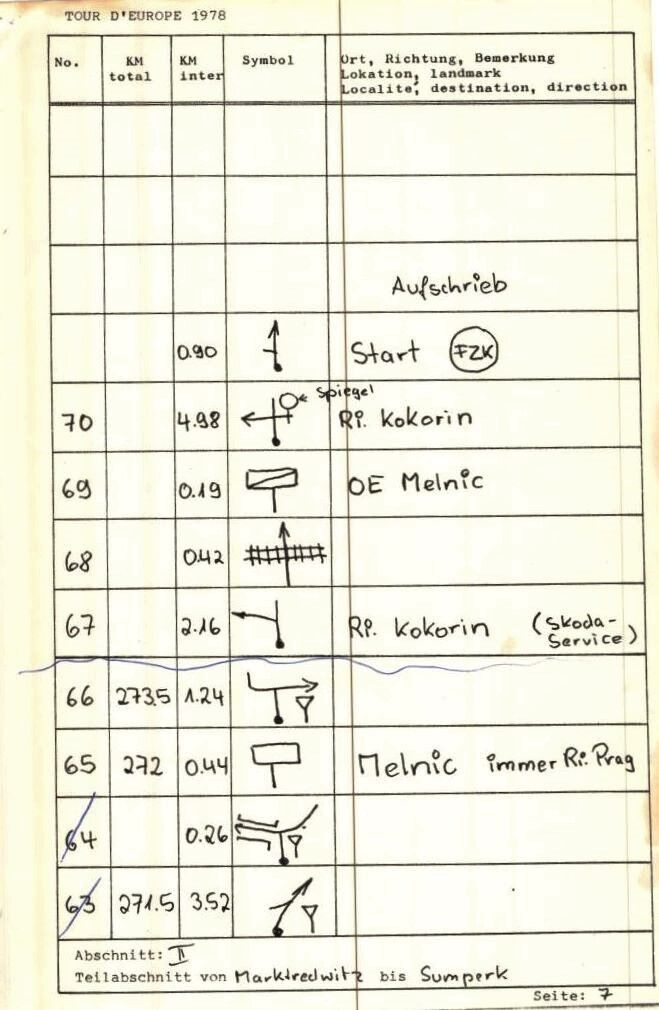 TOUR D'EUROPE 1978
No. KM total KM inter Symbol Ort, Richtung, Bemerkung
Lokation, landmark
Localite, destination, direction
Aufschrieb
0.90 Start FZK
Spiegel
70 4.98 Ri. Kokorin
69 0.19 OE Melnic
68 0.42
67 2.16 Ri. Kokorin (Skoda-
Service)
66 273.5 1.24
65 272 0.44 Melnic immer Ri. Prag
64 0.26
63 271.5 3.52
Abschnitt: II
Teilabschnitt von Marktredwitz bis Sumperk
Seite: 7